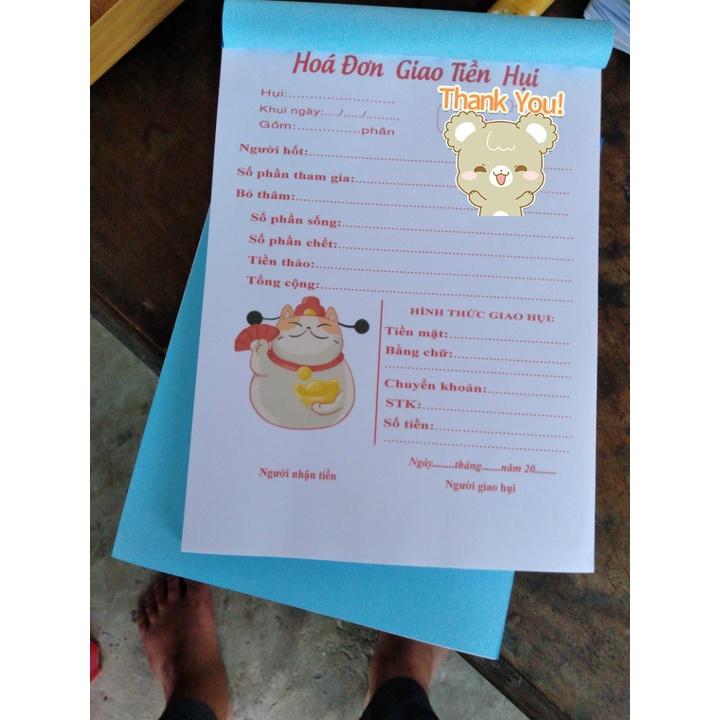 Hoá Đơn Giao Tiền Hụi
Hụi:........................
Thank You!
Khui ngày:..../...../.........
Gồm:..............phần
Người hốt:................................................
Số phần tham gia:................................................
Bỏ thăm:................................................
Số phần sống:................................................
Số phần chết:................................................
Tiền thảo:................................................
Tổng cộng:................................................
HÌNH THỨC GIAO HỤI:
Tiền mặt:........................
Bằng chữ:........................
................................................
Chuyển khoản:........................
STK:................................
Số tiền:................................
................................................
Ngày........tháng.......năm 20........
Người nhận tiền
Người giao hụi